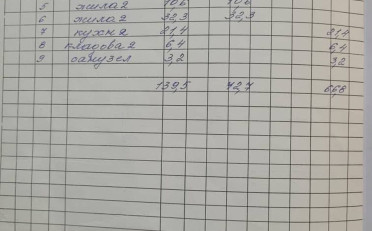 5 жила 2 10,6 10,6
6 жила 2 32,3 32,3
7 кухня 21,4 21,4
8 кладова 2 6,4 6,4
9 санузел 3,2 3,2
139,5 72,7 66,8